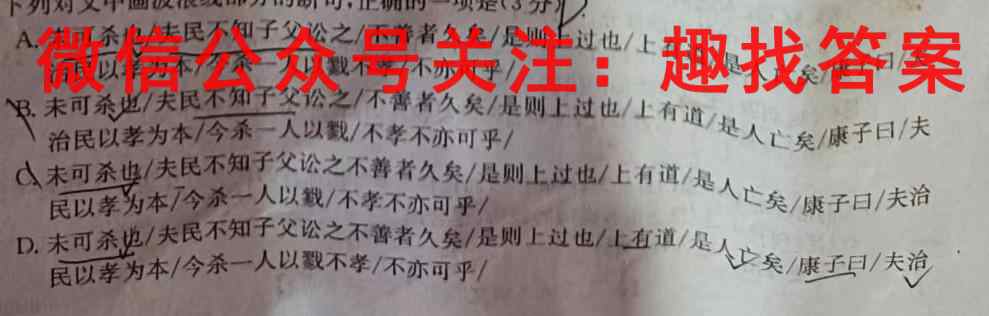 下列对文中画波浪线部分的断句,正确的一项是(3分)
A.未可杀也/夫民不知子父讼之/不善者久矣/是则上过也/上
微信公众号关注：趣找答案
治民以孝为本/今杀一人以戮不孝/不亦可乎/
B.未可杀也/夫民不知子父讼之/不善者久矣/是则上过也/上有道/是人亡矣/康子曰/夫
治民以孝为本/今杀一人以戮/不孝不亦可乎/
C.未可杀也/夫民不知子父讼之不善者久矣/是则上过也/上有道/是人亡矣/康子曰/夫治
民以孝为本/今杀一人以戮/不孝不亦可乎/
D.未可杀也/夫民不知子父讼之不善者久矣/是则上过也/上有道/是人亡矣/康子曰/夫治
民以孝为本/今杀一人以戮不孝/不亦可乎/